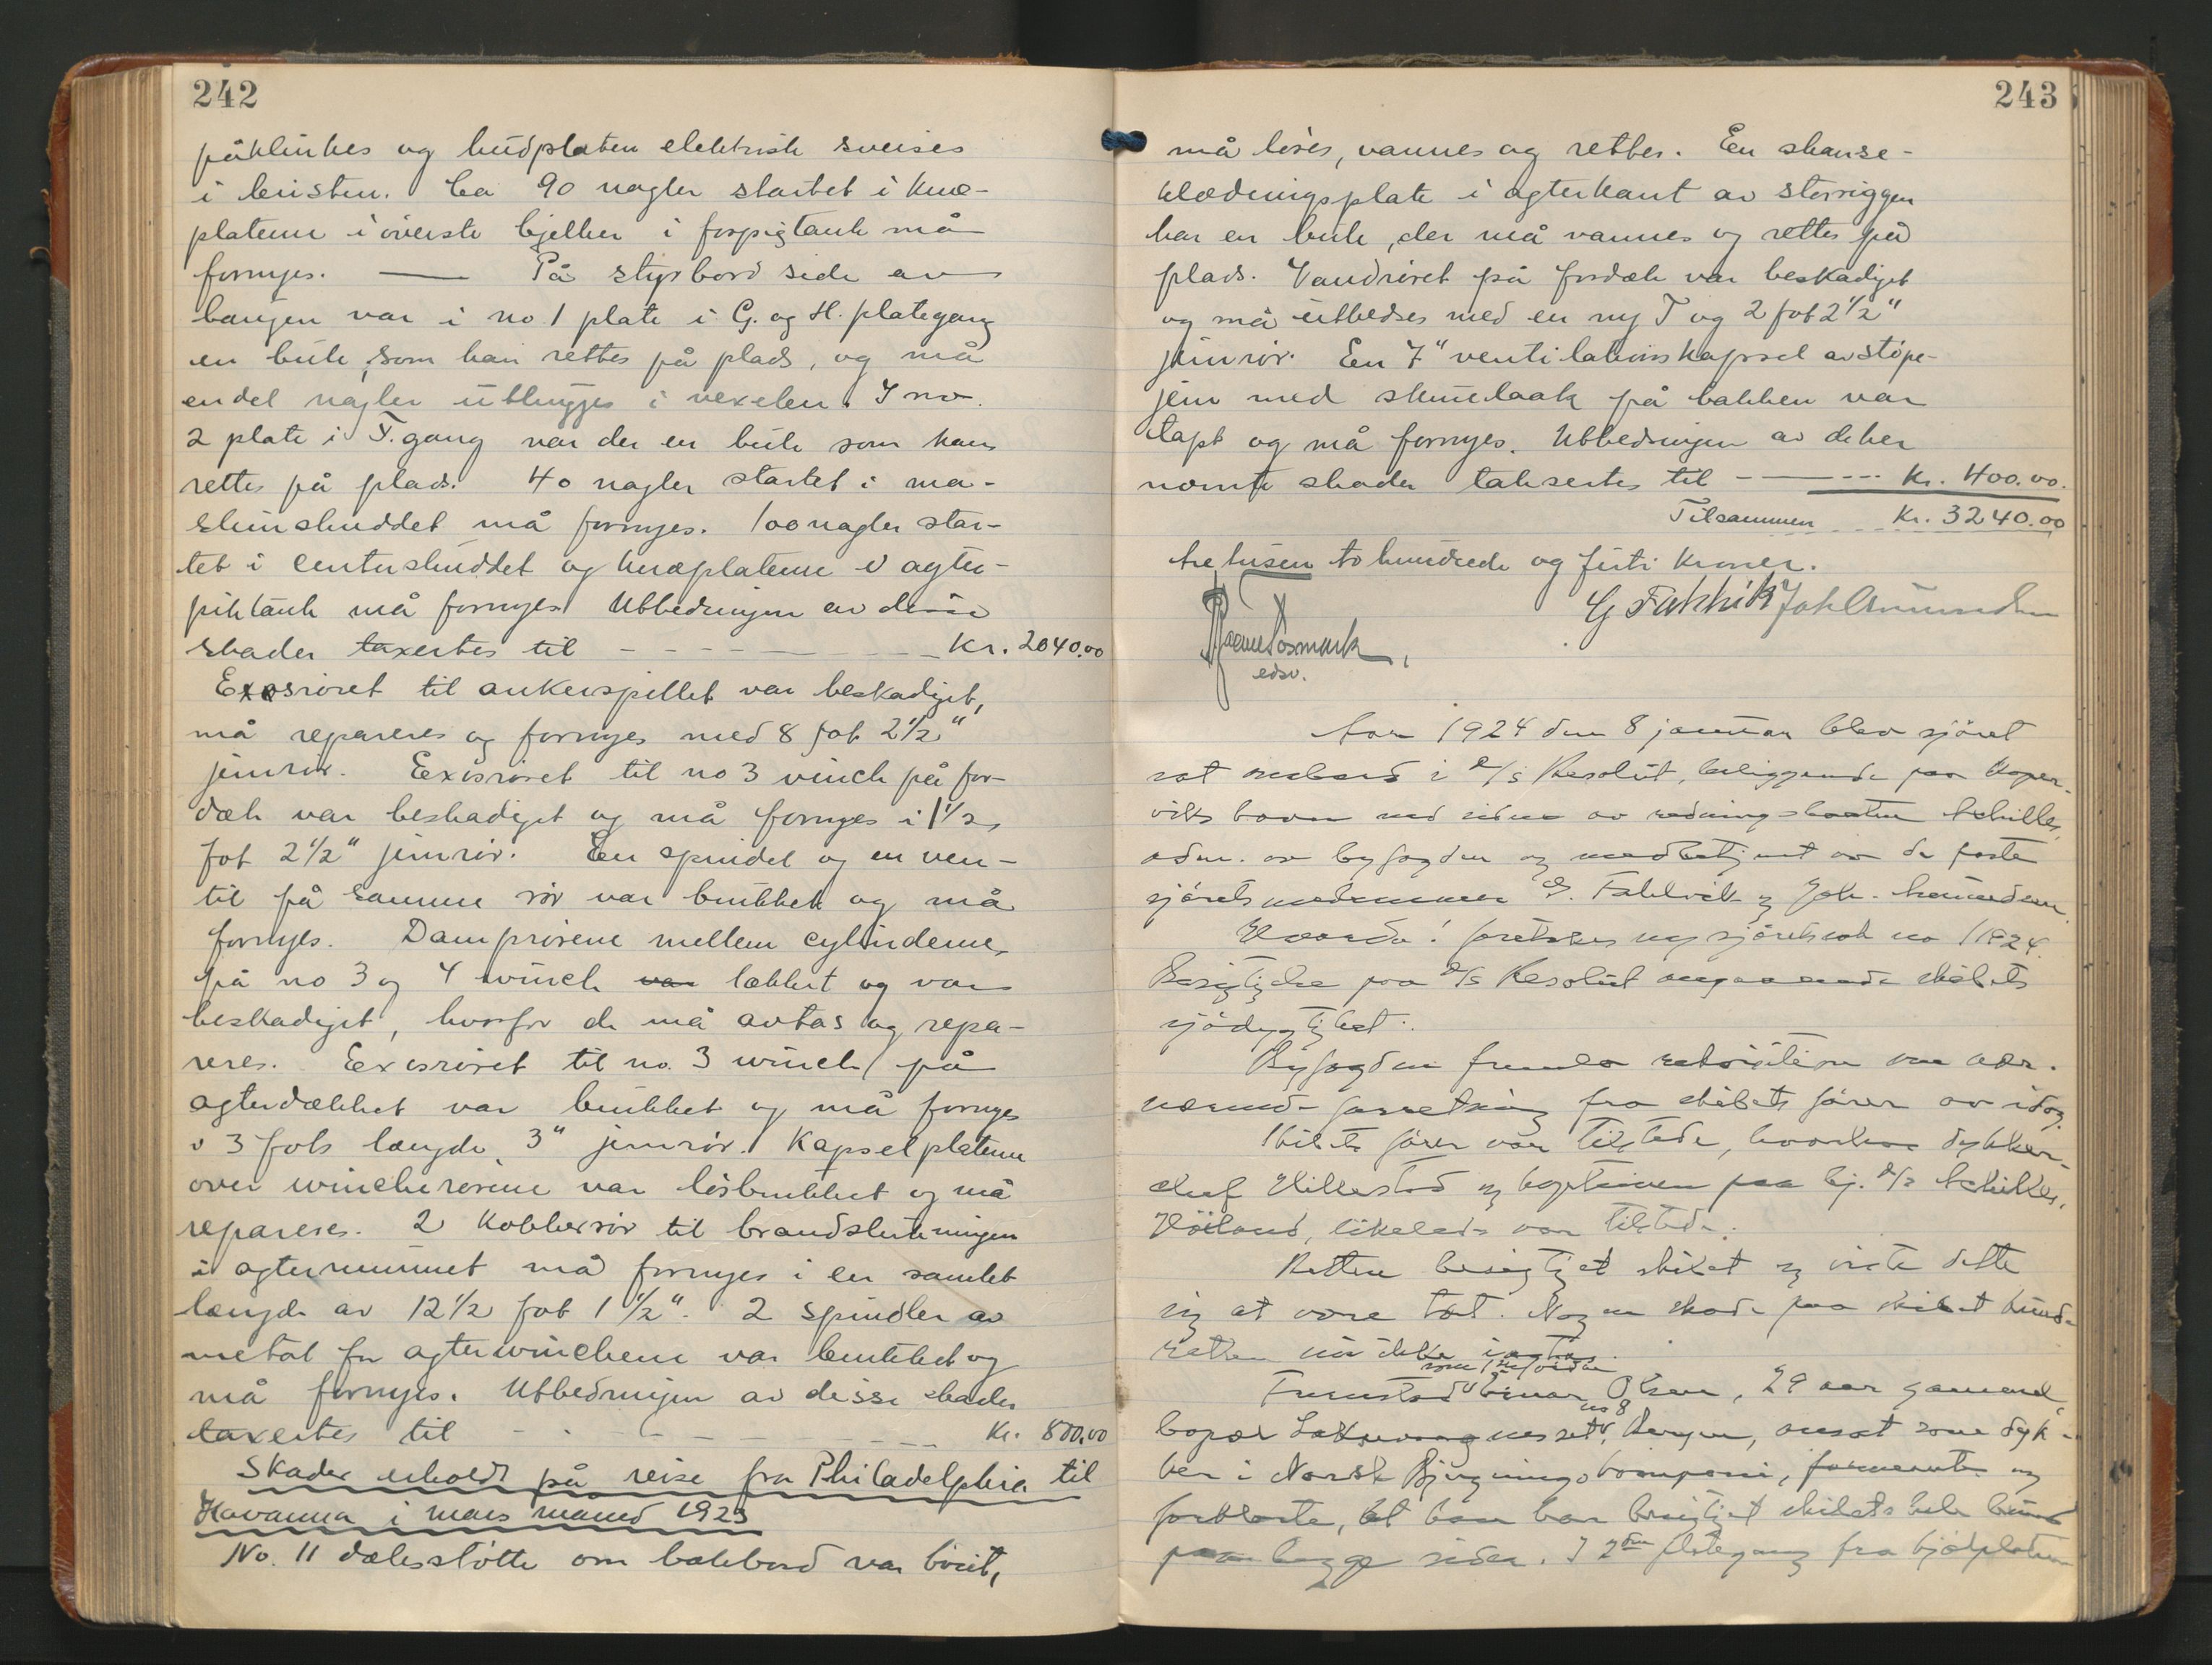 242
påklinkes og hudplaten elektrisk sveises
i bristen. Ca 90 nagler startet i knæ-
platene i överste bjelker i forpigtank må
fornyes. — På styrbord side av
baugen var i no 1 plate i G. og H. plategang
en bule, som kan rettes på plads, og må
endel nagler utbygges i vexelen. I no.
2 plate i F. gang var der en bule som kan
rettes på plads. 40 nagler startet i ma-
skinskuddet må fornyes. 100 nagler star-
tet i centerskuddet og knæplatene i agter-
piktank må fornyes. Utbedringen av disse
skader taxertes til - - - - - - Kr. 2040.00
Exosröret til ankerspillet var beskadiget,
må repareres og fornyes med 8 fot 2½"
jernrör. Exosröret til no 3 vinch på for-
dæk var beskadiget og må fornyes i 1½
fot 2½" jernrör. En spindel og en ven-
til på samme rör var brukket og må
fornyes. Damprörene mellem cylinderne,
på no 3 og 4 winch var lækket og var
beskadiget, hvorfor de må avtas og repa-
reres. Exosröret til no. 3 winch på
agterdækket var brukket og må fornyes
i 3 fots længde, 3" jernrör. Kapselplatene
over winchrörene var lösbrukket og må
repareres. 2 Kobberrör til brandslukningen
i agterrummet må fornyes i en samlet
længde av 12½ fot 1½". 2 spindler av
metal for agterwinchene var brukket og
må fornyes. Utbedringen av disse skader
taxertes til - - - - - - Kr. 800.00
Skader erholdt på reise fra Philadelphia til
Havanna i mars måned 1923
No. 11 dæksstötte om bakbord var böiet,
243
må löses, varmes og rettes. En skanse-
klædningsplate i agterkant av storriggen
har en bule, der må varmes og rettes på
plads. Vandröret på fordæk var beskadiget
og må utbedres med en ny T og 2 fot 2½"
jernrör. En 7" ventilationskapsel av stöpe-
jern med skruelaak på bakken var
tapt og må fornyes. Utbedringen av de her
nævnte skader taksertes til - - - Kr. 400.00.
Tilsammen Kr. 3240.00
tre tusen to hundrede og förti kroner.
G Fahlvik Joh Amundsen
edsv.
Aar 1924 den 8 januar blev sjöret
sat ombord i D/S Resolut, beliggende paa Koper-
viks havn ved siden av redningsbaaten Achilles,
adm. av byfogden og medbetjent av de faste
sjöretsmedlemmer G. Fahlvik og Joh. Amundsen.
Hvorda! foretokes ny sjöretssak no 1 1924
Besigtigelse paa D/S Resolut angaaende skibets
sjödygtighet.
Byfogden fremla rekvisition om nær-
værende forretning fra skibets förer av idag.
Skibets förer var tilstede, hvorhos dykker-
chef Hillestad og kapteinen paa bj. D/S Achilles,
Höiland, likeledes var tilstede.
Retten besigtiget skibet og viste dette
sig at være tæt. Nogen skade paa skibet kunde
retten nu ikke iagta.
som 1ste vidne
Fremstod Einar Olsen, 29 aar gammel,
no 8
bopæl Laksevaag nesset, Bergen, ansat som dyk-
ker i Norsk Bjergningskompani, formante og
forklarte, at han har besigtiget skibets hele bund
paa begge sider. I 2den plategang fra kjölplaten